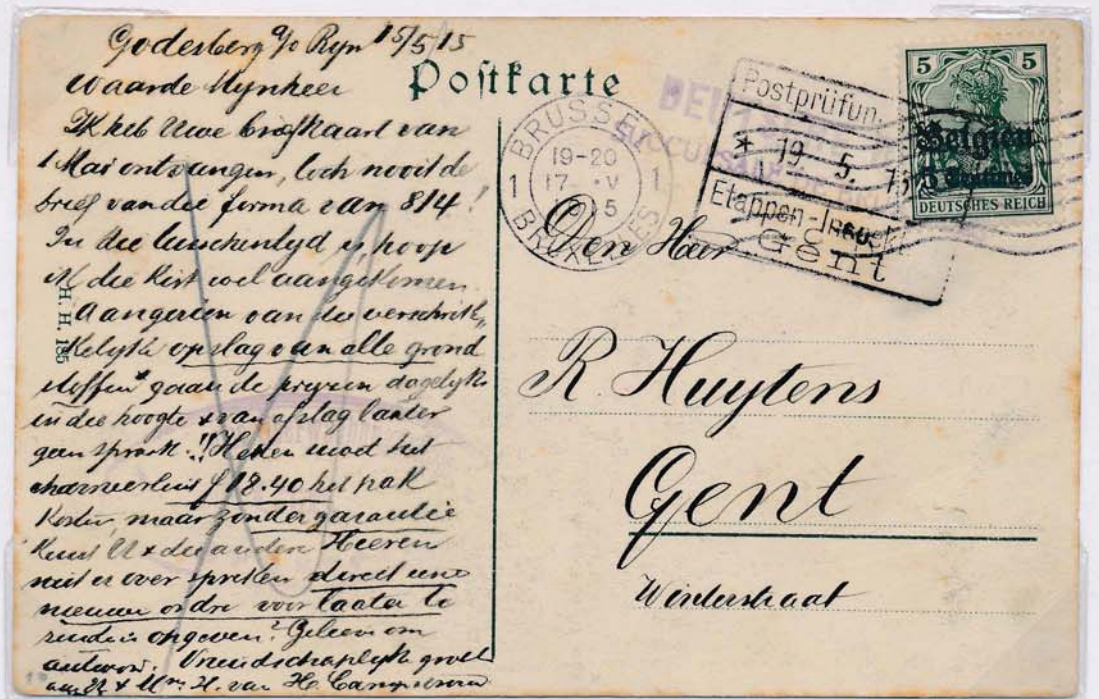 Godesberg a/o Ryn 15/5/15
Waarde Mynheer
Ik heb Uwe briefkaart van
1 Mai ontvangen, toch nooit de
brief van die firma van 8/4!
In die tusschentyd is, hoop
ik die kist wel aangekomen.
Aangezien van die verschrik„
kelyke opslag van alle grond
stoffen gaan de pryzen dagelyks
in die hoogte & van afslag later
geen spraak!! Heden moet het
f 18.40 het pak
Kosten, maar zonder garantie
Kunt U & die andere Heeren
niet er over spreken direct een
nieuwe ordre voor later te
zenden opgeven? Gelieve om
antwoord. Vriendschaplyke groet
aan U & Mr. H. van H.
H. H. 185
Postkarte
BRUSSEL
19-20
17 V
15
1 1
BRUXELLES
DEUTSCHE
SUCCURSALE
Postprüfung
* 19. 5. 15
Etappen-Inspekt.
Gent
5 5
Belgien
5 Centimes
DEUTSCHES REICH
Den Heer
R. Huytens
Gent
Winterstraat